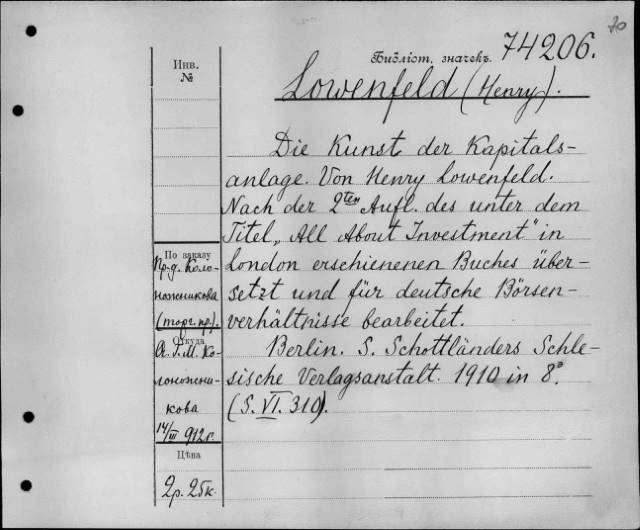 70
Инв.
№
Библіот. значекъ 74206.
Lowenfeld (Henry).
Die Kunst der Kapitals-
anlage. Von Henry Lowenfeld.
Nach der 2ten Aufl. des unter dem
Titel „All About Investment" in
London erschienenen Buches über-
setzt und für deutsche Börsen-
verhältnisse bearbeitet.
Berlin. S. Schottländers Schle-
sische Verlagsanstalt. 1910 in 8°
(S. VI. 310).
По заказу
Пр-д. Коло-
ножникова
(торг. пр.).
Откуда
А. Г. М. Ко-
лоножни-
кова
14/III 912 г.
Цѣна
2р. 25к.